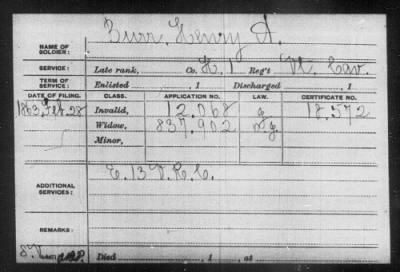 NAME OF SOLDIER: Burr, Henry A.
SERVICE: Late rank, Co. H, 1 Reg't Vt. Cav.
TERM OF SERVICE: Enlisted , 1 Discharged , 1
DATE OF FILING. CLASS. APPLICATION NO. LAW. CERTIFICATE NO.
1863. Feb. 28 Invalid, 12.068 18.572
Widow, 837.902
Minor,
ADDITIONAL SERVICES: E. 13 V.R.C.
REMARKS:
Died , 1 , at